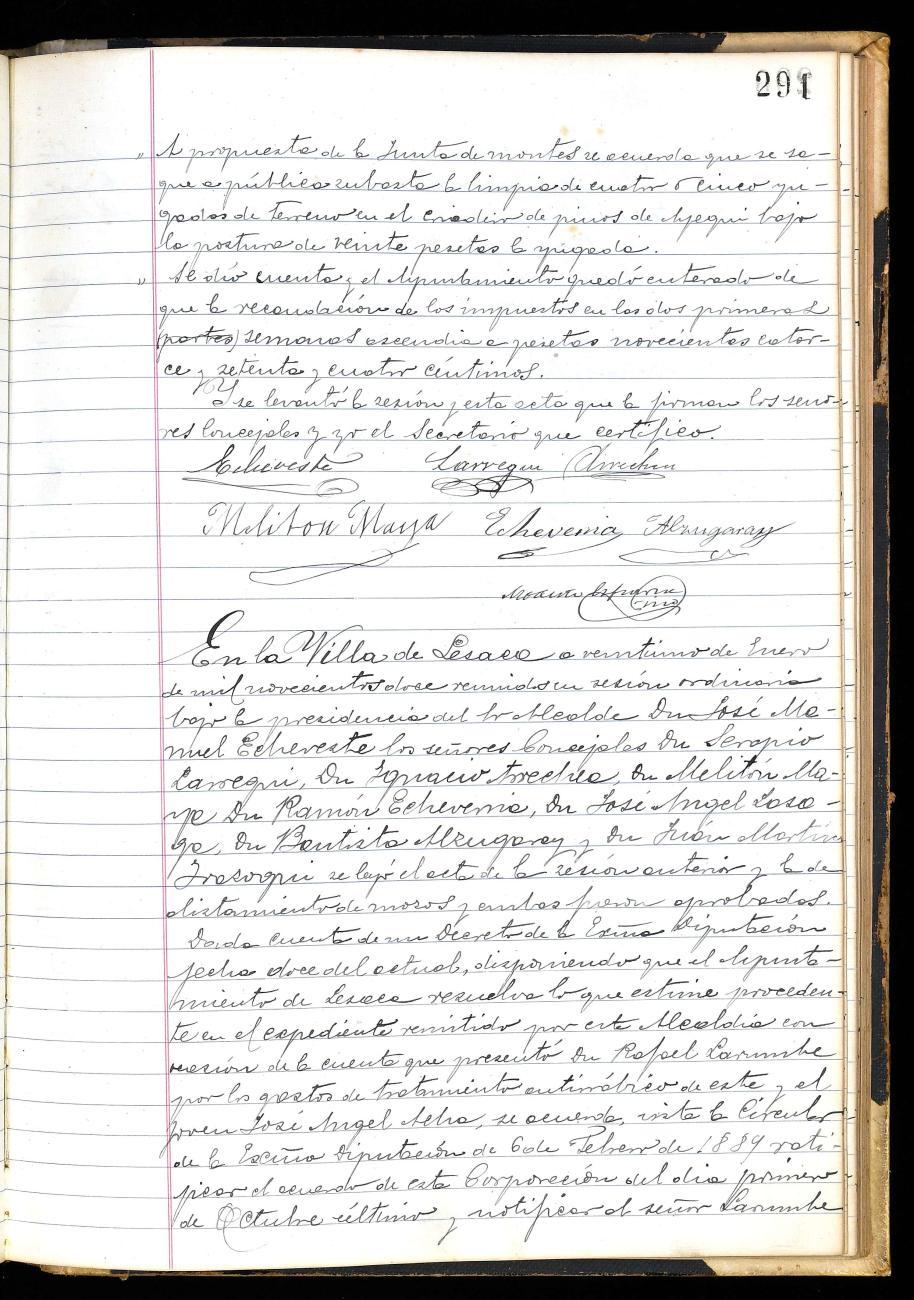 291
" A propuesta de la Junta de montes se acuerda que se sa-
que a pública subasta la limpia de cuatro o cinco yu-
gadas de terreno en el criadero de pinos de Ayegui bajo
la postura de veinte pesetas la yugada.
" Se dió cuenta y el Ayuntamiento quedó enterado de
que la recaudación de los impuestos en las dos primeras
(partes) semanas ascendia a pesetas novecientas cator-
ce y setenta y cuatro céntimos.
Y se levantó la sesión y esta acta que la firman los seño-
res Concejales y yo el Secretario que certifico.
Echeveste Larregui Arrechea
Meliton Maya Echeverria Alzugaray
En la Villa de Lesaca a veintiuno de Enero
de mil novecientos doce reunidos en sesión ordinaria
bajo la presidencia del Sr Alcalde Dn José Ma-
nuel Echeveste los señores Concejales Dn Serapio
Larregui, Dn Ignacio Arrechea, Dn Melitón Ma-
ya Dn Ramón Echeverria, Dn José Angel Lasa-
ga, Dn Bautista Alzugaray y Dn Juan Martin
Irazoqui se leyó el acta de la sesión anterior y la de
alistamiento de mozos y ambas fueron aprobadas.
Dada cuenta de un Decreto de la Exma Diputación
fecha doce del actual, disponiendo que el Ayunta-
miento de Lesaca resuelva lo que estime proceden-
te en el expediente remitido por esta Alcaldia con
ocasión de la cuenta que presentó Dn Rafael Larumbe
por los gastos de tratamiento antirrábico de este y el
joven José Angel se acuerda, vista la Circular
de la Excma Diputación de 6 de Febrero de 1889 rati-
ficar el acuerdo de esta Corporación del dia primero
de Octubre último y notificar al señor Larumbe